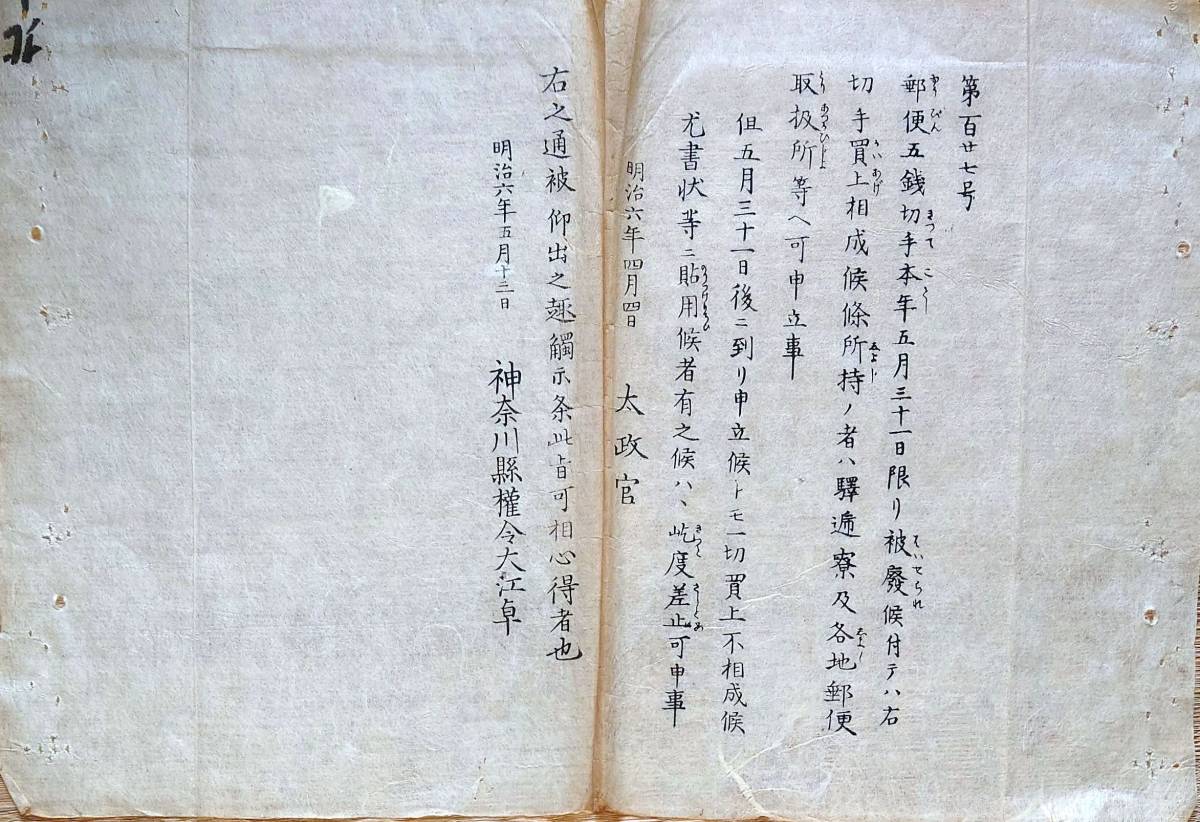 第百廿七号
郵便五銭切手本年五月三十一日限リ被廢候付テハ右
切手買上相成候條所持ノ者ハ驛逓寮及各地郵便
取扱所等ヘ可申立事
但五月三十一日後ニ到リ申立候トモ一切買上不相成候
尤書状等ニ貼用候者有之候ハヽ屹度差止可申事
明治六年四月四日 太政官
右之通被仰出之趣觸示条此旨可相心得者也
明治六年五月十三日 神奈川縣權令大江卓